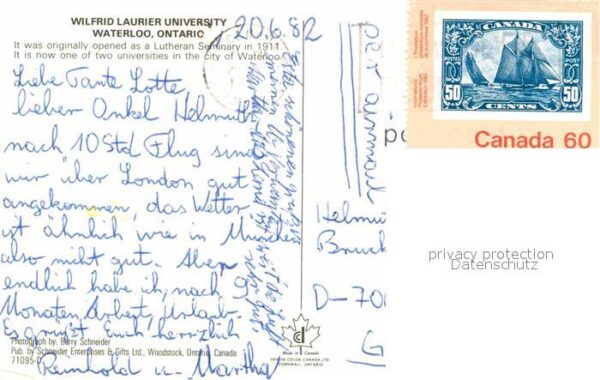 WILFRID LAURIER UNIVERSITY
WATERLOO, ONTARIO
It was originally opened as a Lutheran Seminary in 1911.
It is now one of two universities in the city of Waterloo.
20.6.82
Liebe Tante Lotte,
lieber Onkel Helmuth
nach 10 Std Flug sind
wir über London gut
angekommen, das Wetter
ist ähnlich wie in München
also nicht gut. Aber
endlich habe ich, nach 9
Monaten Arbeit, Urlaub.
Es grüßt Euch herzlich
Reinhold u. Martha
Photograph by: Barry Schneider
Pub. by Schneider Enterprises & Gifts Ltd., Woodstock, Ontario, Canada
71095-D
Made in Canada
DEXTER COLOR CANADA LTD
CORNWALL, ONTARIO
per airmail
po
Helmu
Bruch
D-700
G
CANADA
POSTES
POST
50
CENTS
50
Canada 60
privacy protection
Datenschutz